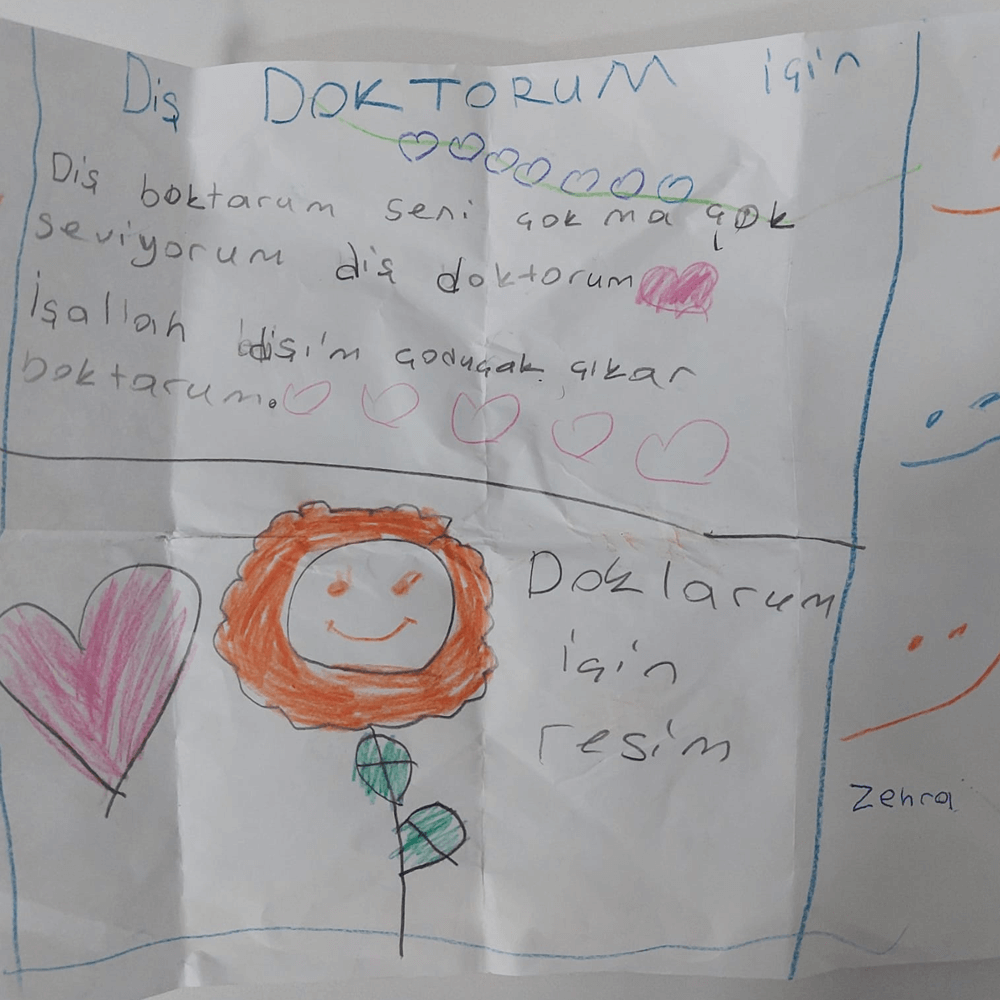 Diş DOKTORUM için
Diş boktarum seni çok ma çok
seviyorum diş doktorum
işallah dişim çoduçak çıkar
boktarum.
Doklarum
için
resim
Zehra